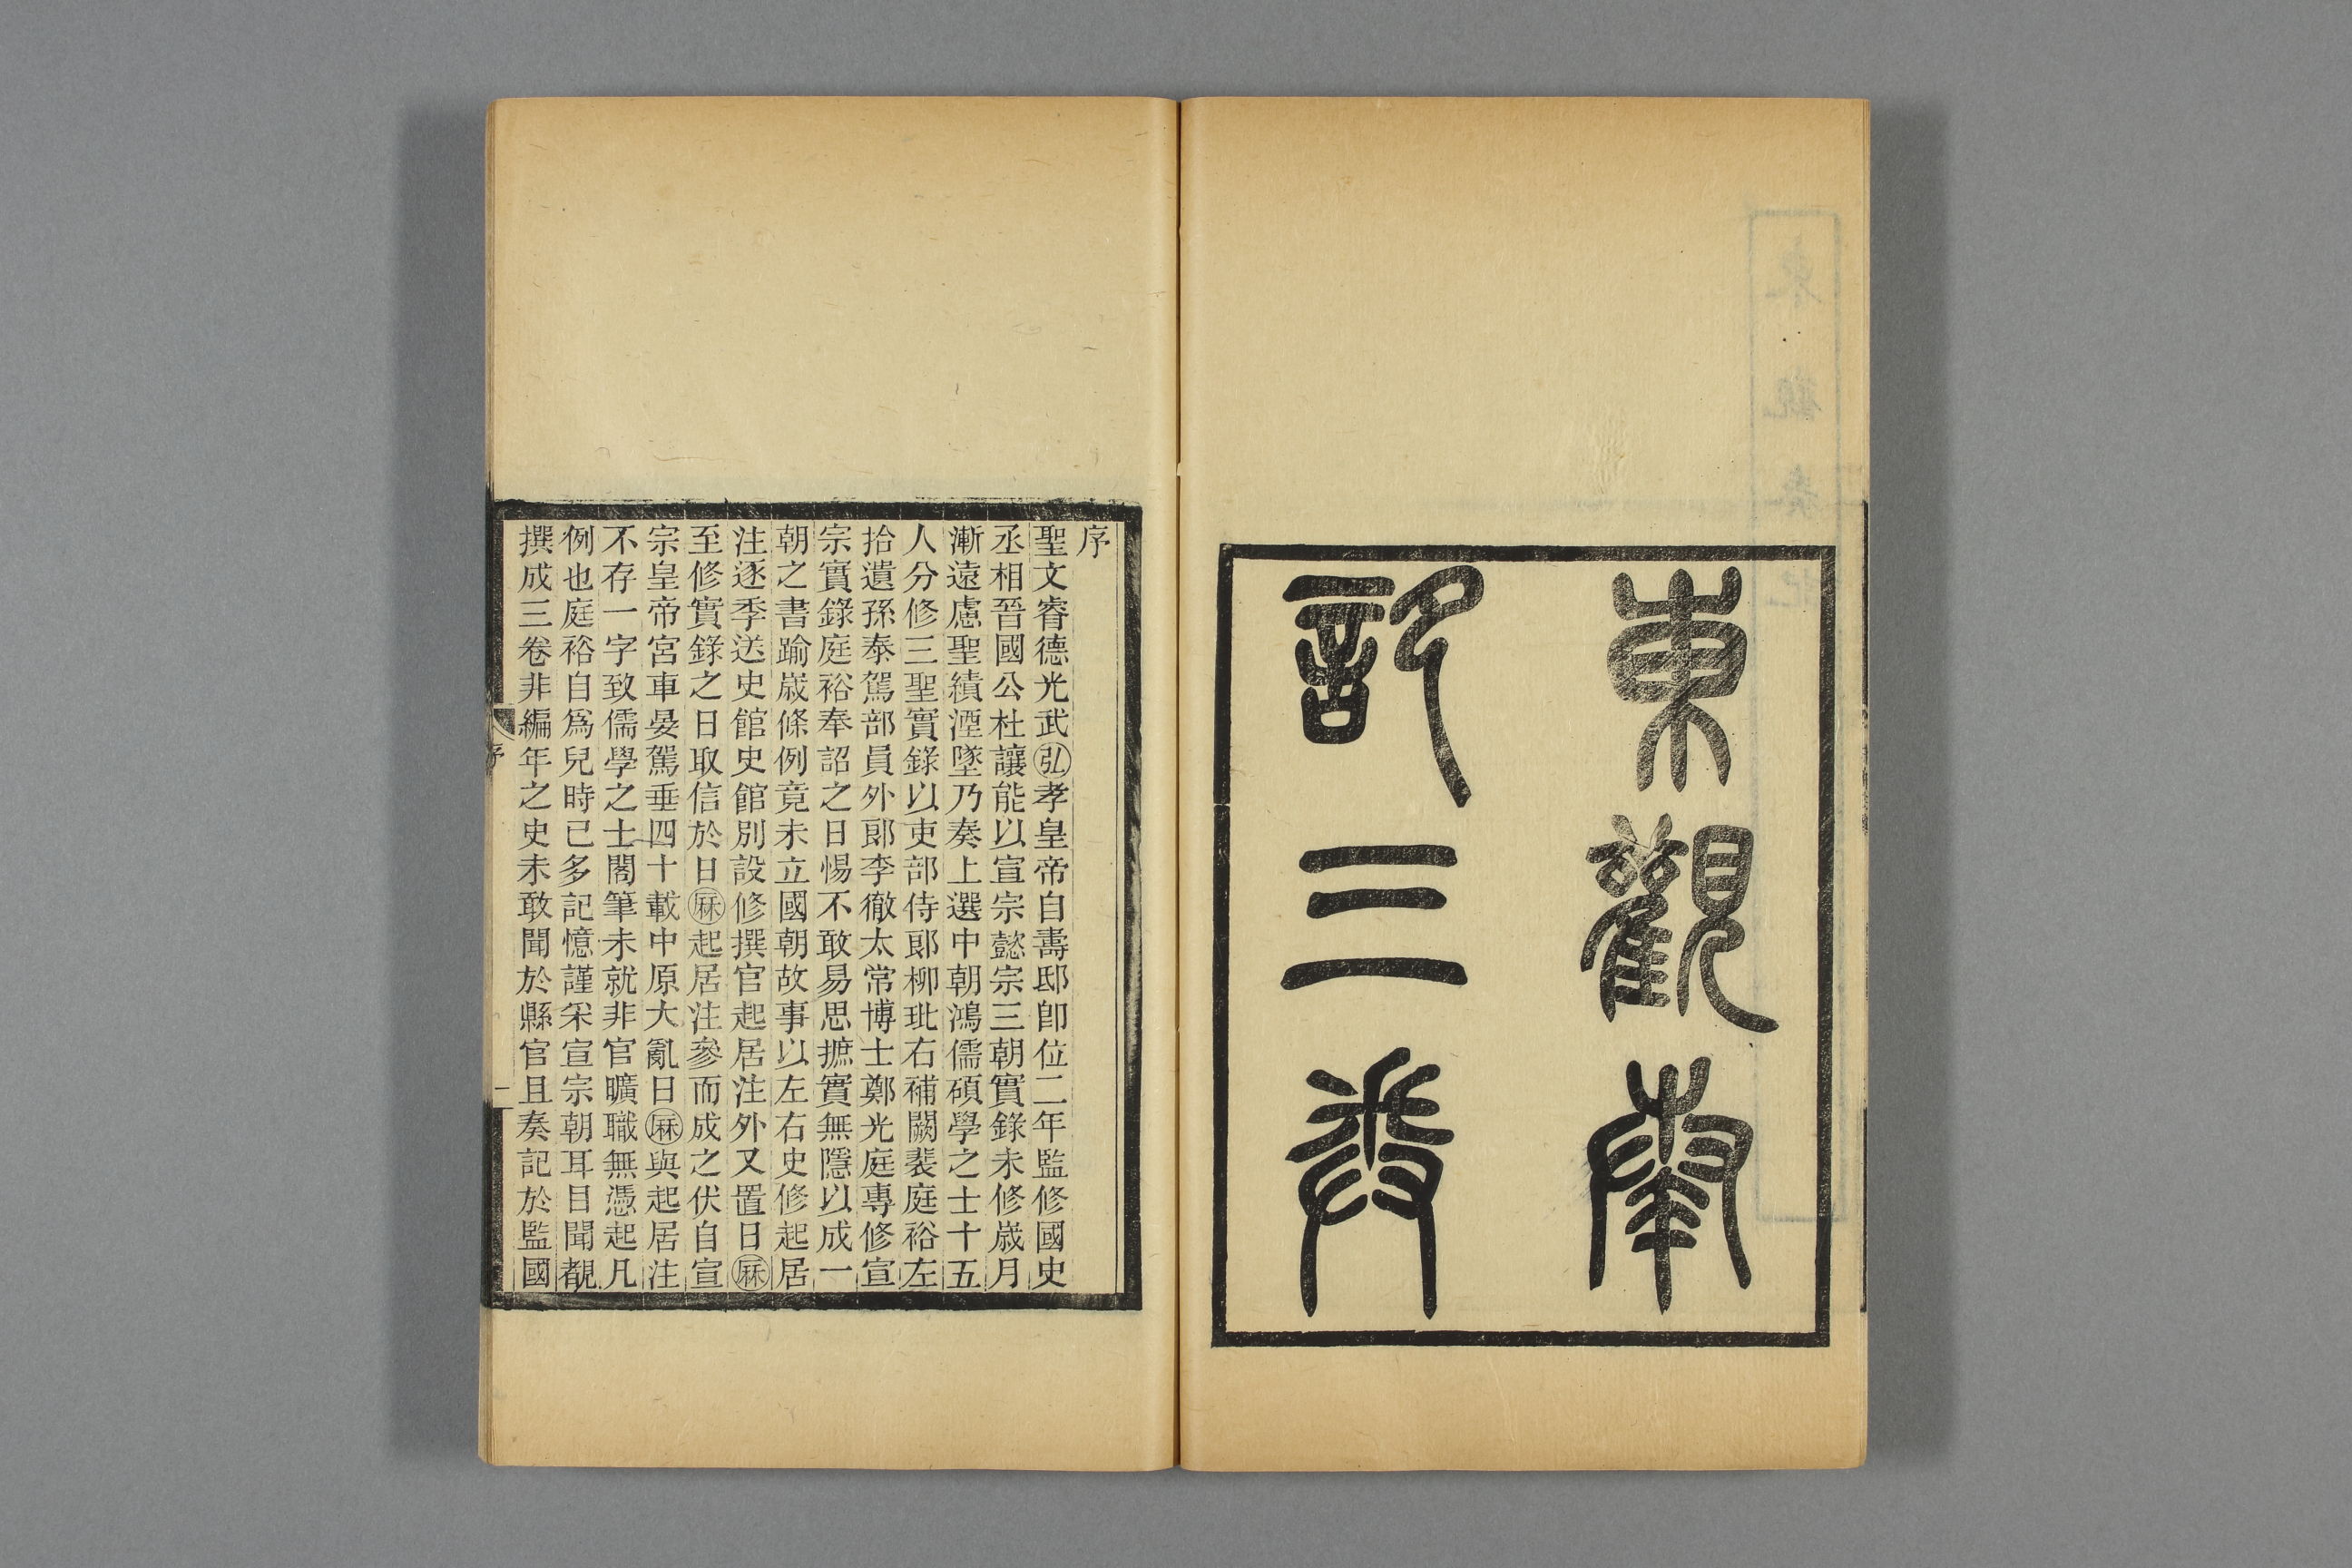 東觀奏
記三卷
序
聖文睿德光武弘孝皇帝自壽邸卽位二年監修國史
丞相晉國公杜讓能以宣宗懿宗三朝實錄未修歲月
漸遠慮聖績湮墜乃奏上選中朝鴻儒碩學之士十五
人分修三聖實錄以吏部侍郞柳玭右補闕裴庭裕左
拾遺孫泰駕部員外郞李徹太常博士鄭光庭專修宣
宗實錄庭裕奉詔之日惕不敢易思摭實無隱以成一
朝之書踰嵗條例竟未立國朝故事以左右史修起居
注逐季送史館史館別設修撰官起居注外又置日厤
至修實錄之日取信於日厤起居注參而成之伏自宣
宗皇帝宮車晏駕垂四十載中原大亂日厤與起居注
不存一字致儒學之士閣筆未就非官曠職無憑起凡
例也庭裕自爲兒時已多記憶謹采宣宗朝耳目聞覩
撰成三卷非編年之史未敢聞於縣官且奏記於監國
序
一